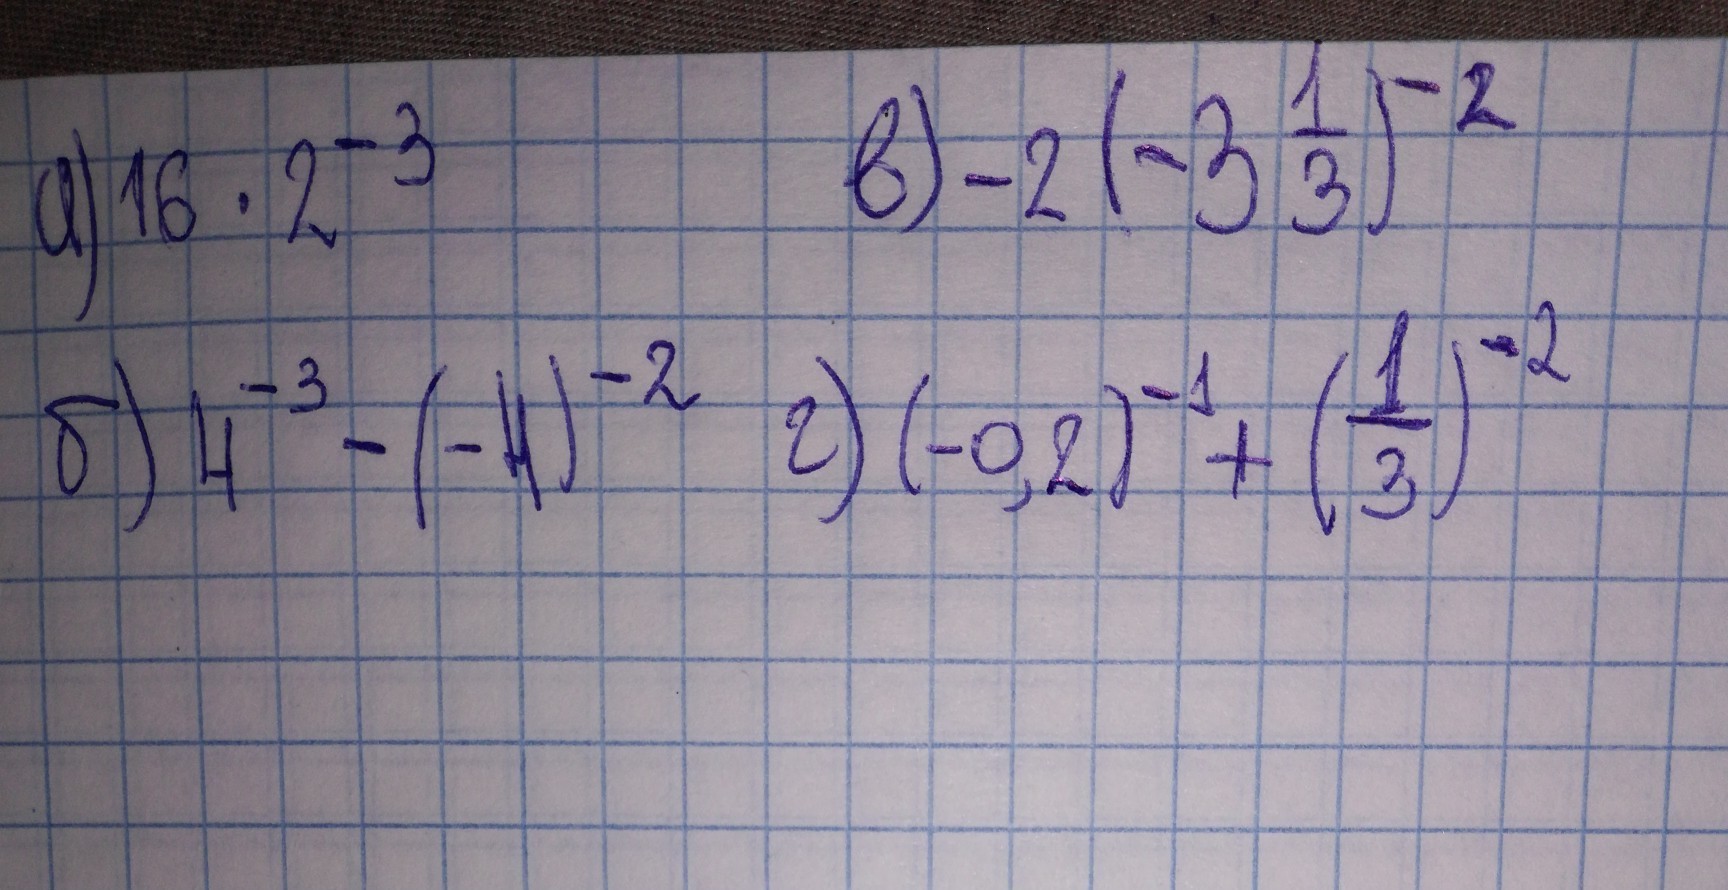 а) 16 · 2⁻³
в) -2(-3 1/3)⁻²
б) 4⁻³ - (-4)⁻²
г) (-0,2)⁻¹ + (1/3)⁻²